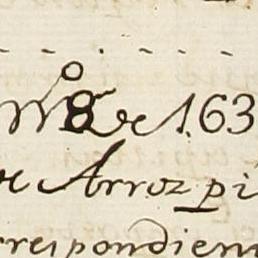 N.º 8 de 163
de Arroz pi
rrespondien